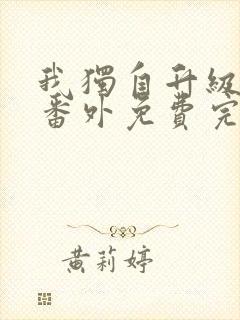 我獨自升級
番外免費完
黃莉婷